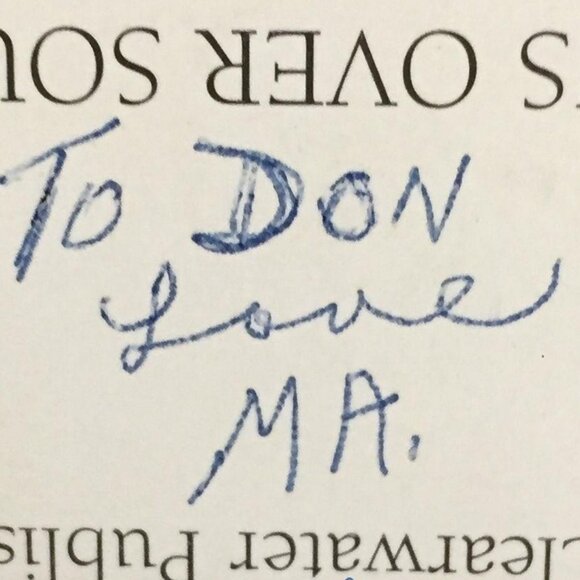 S OVER SOU
TO DON
Love
MA.
learwater Publis